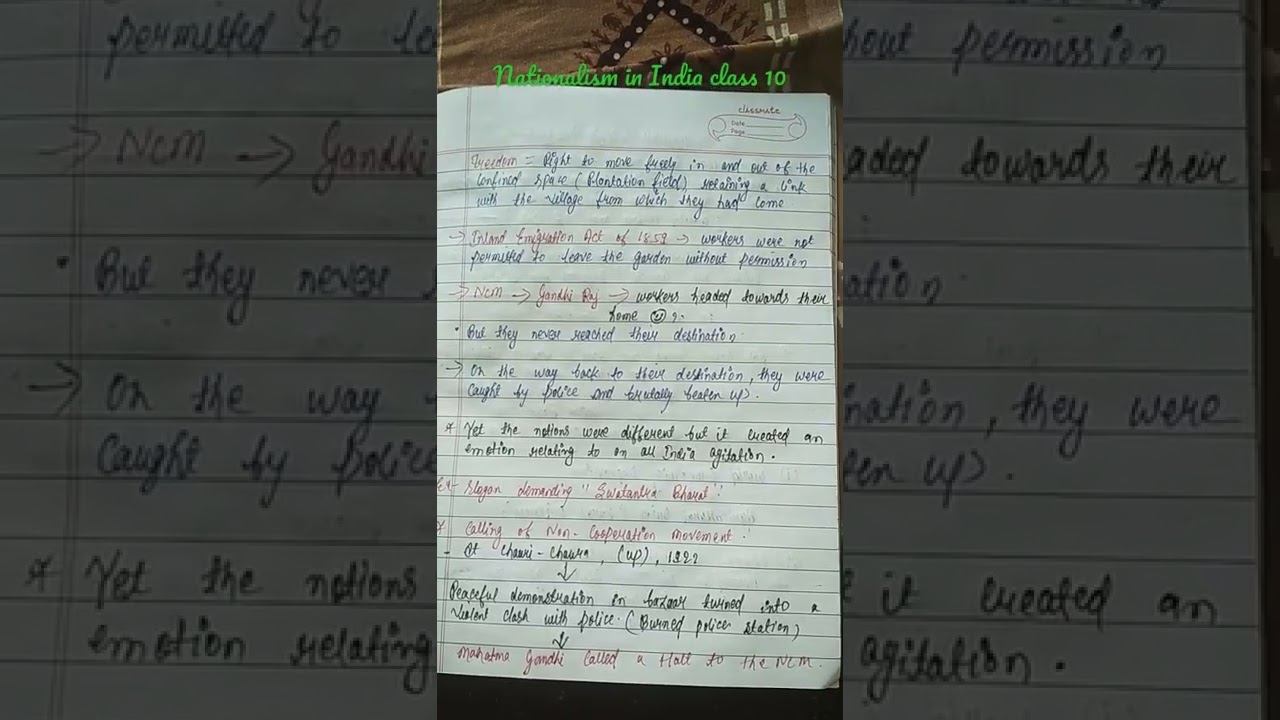 Nationalism in India class 10
classmate
Date
Page
Freedom = Right to move freely in and out of the
confined space (Plantation field) retaining a link
with the village from which they had come
→ Inland Emigration Act of 1859 → workers were not
permitted to leave the garden without permission
→ NCM → Gandhi Raj → workers headed towards their
home ☺ ?.
• But they never reached their destination.
→ On the way back to their destination, they were
caught by police and brutally beaten up.
* Yet the notions were different but it created an
emotion relating to an all India agitation.
Ex- Slogan demanding "Swatantra Bharat".
* Calling of Non-Cooperation movement.
- At Chauri-Chaura, (UP), 1922
↓
Peaceful demonstration in bazaar turned into a
violent clash with police. (Burned police station)
↓
Mahatma Gandhi called a Halt to the NCM.
permitted to le
hout permission
→ NCM → Gandhi
eaded towards their
• But they never
ation.
→ On the way
ination, they were
caught by police
ten up.
* Yet the notions
it created an
emotion relating
agitation.